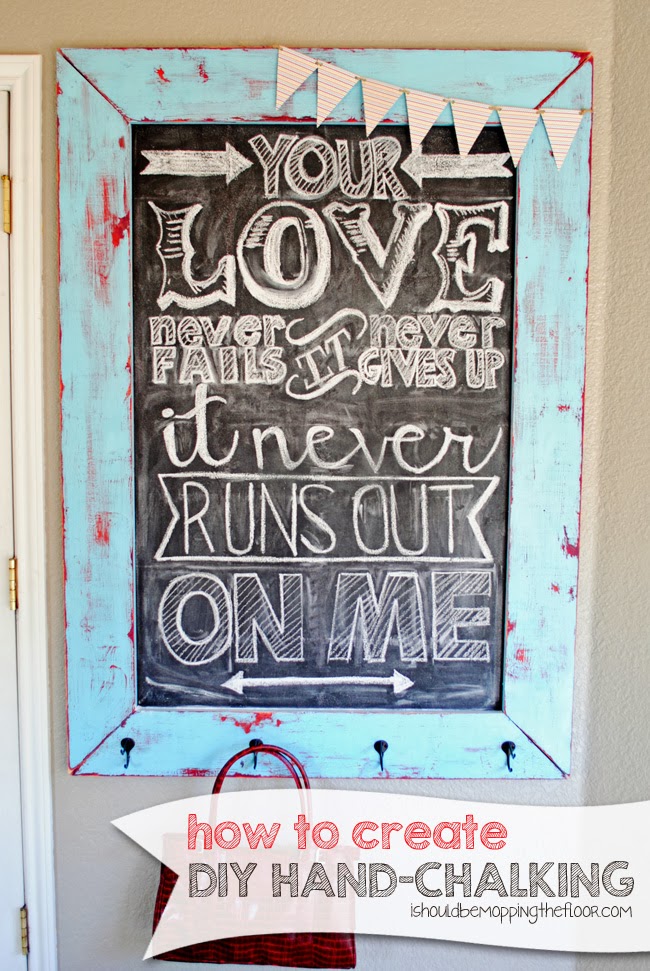 YOUR
LOVE
never FAILS
IT
never GIVES UP
it never
RUNS OUT
ON ME
how to create
DIY HAND-CHALKING
iSHOULDBEMOPPINGTHEFLOOR.COM